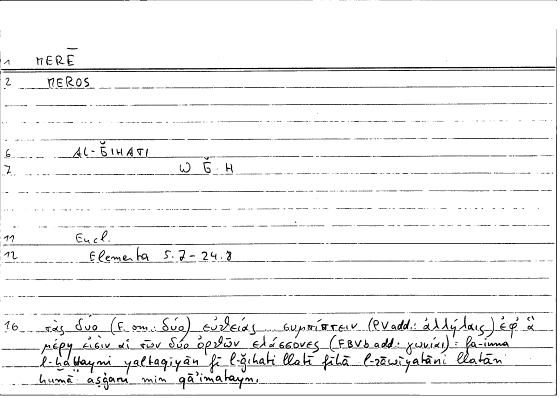 1 MERĒ
2 MEROS
6 AL-ǦIHATI
7 W Ǧ H
11 Eucl.
12 Elementa 5.7-24.8
16 τὰς δύο (F om.: δύο) εὐθείας συμπίπτειν (PV add.: ἀλλήλαις) ἐφ' ἃ
μέρη εἰσὶν αἱ τῶν δύο ὀρθῶν ἐλάσσονες (FBVb add.: γωνίαι) = fa-inna
l-ḫaṭṭayni yaltaqiyāni fī l-ǧihati llatī fīhā l-zāwiyatāni llatān
humā aṣġaru min qā'imatayn.